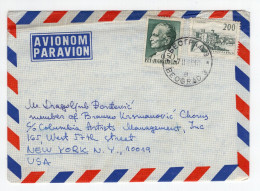 AVIONOM
PARAVION
200
BEOGRAD
Mr Dragoljub Đorđević
member of Branko Krsmanović Chorus
℅ Columbia Artists Management, Inc
165 West 57th Street
NEW YORK N.Y., 10019
USA